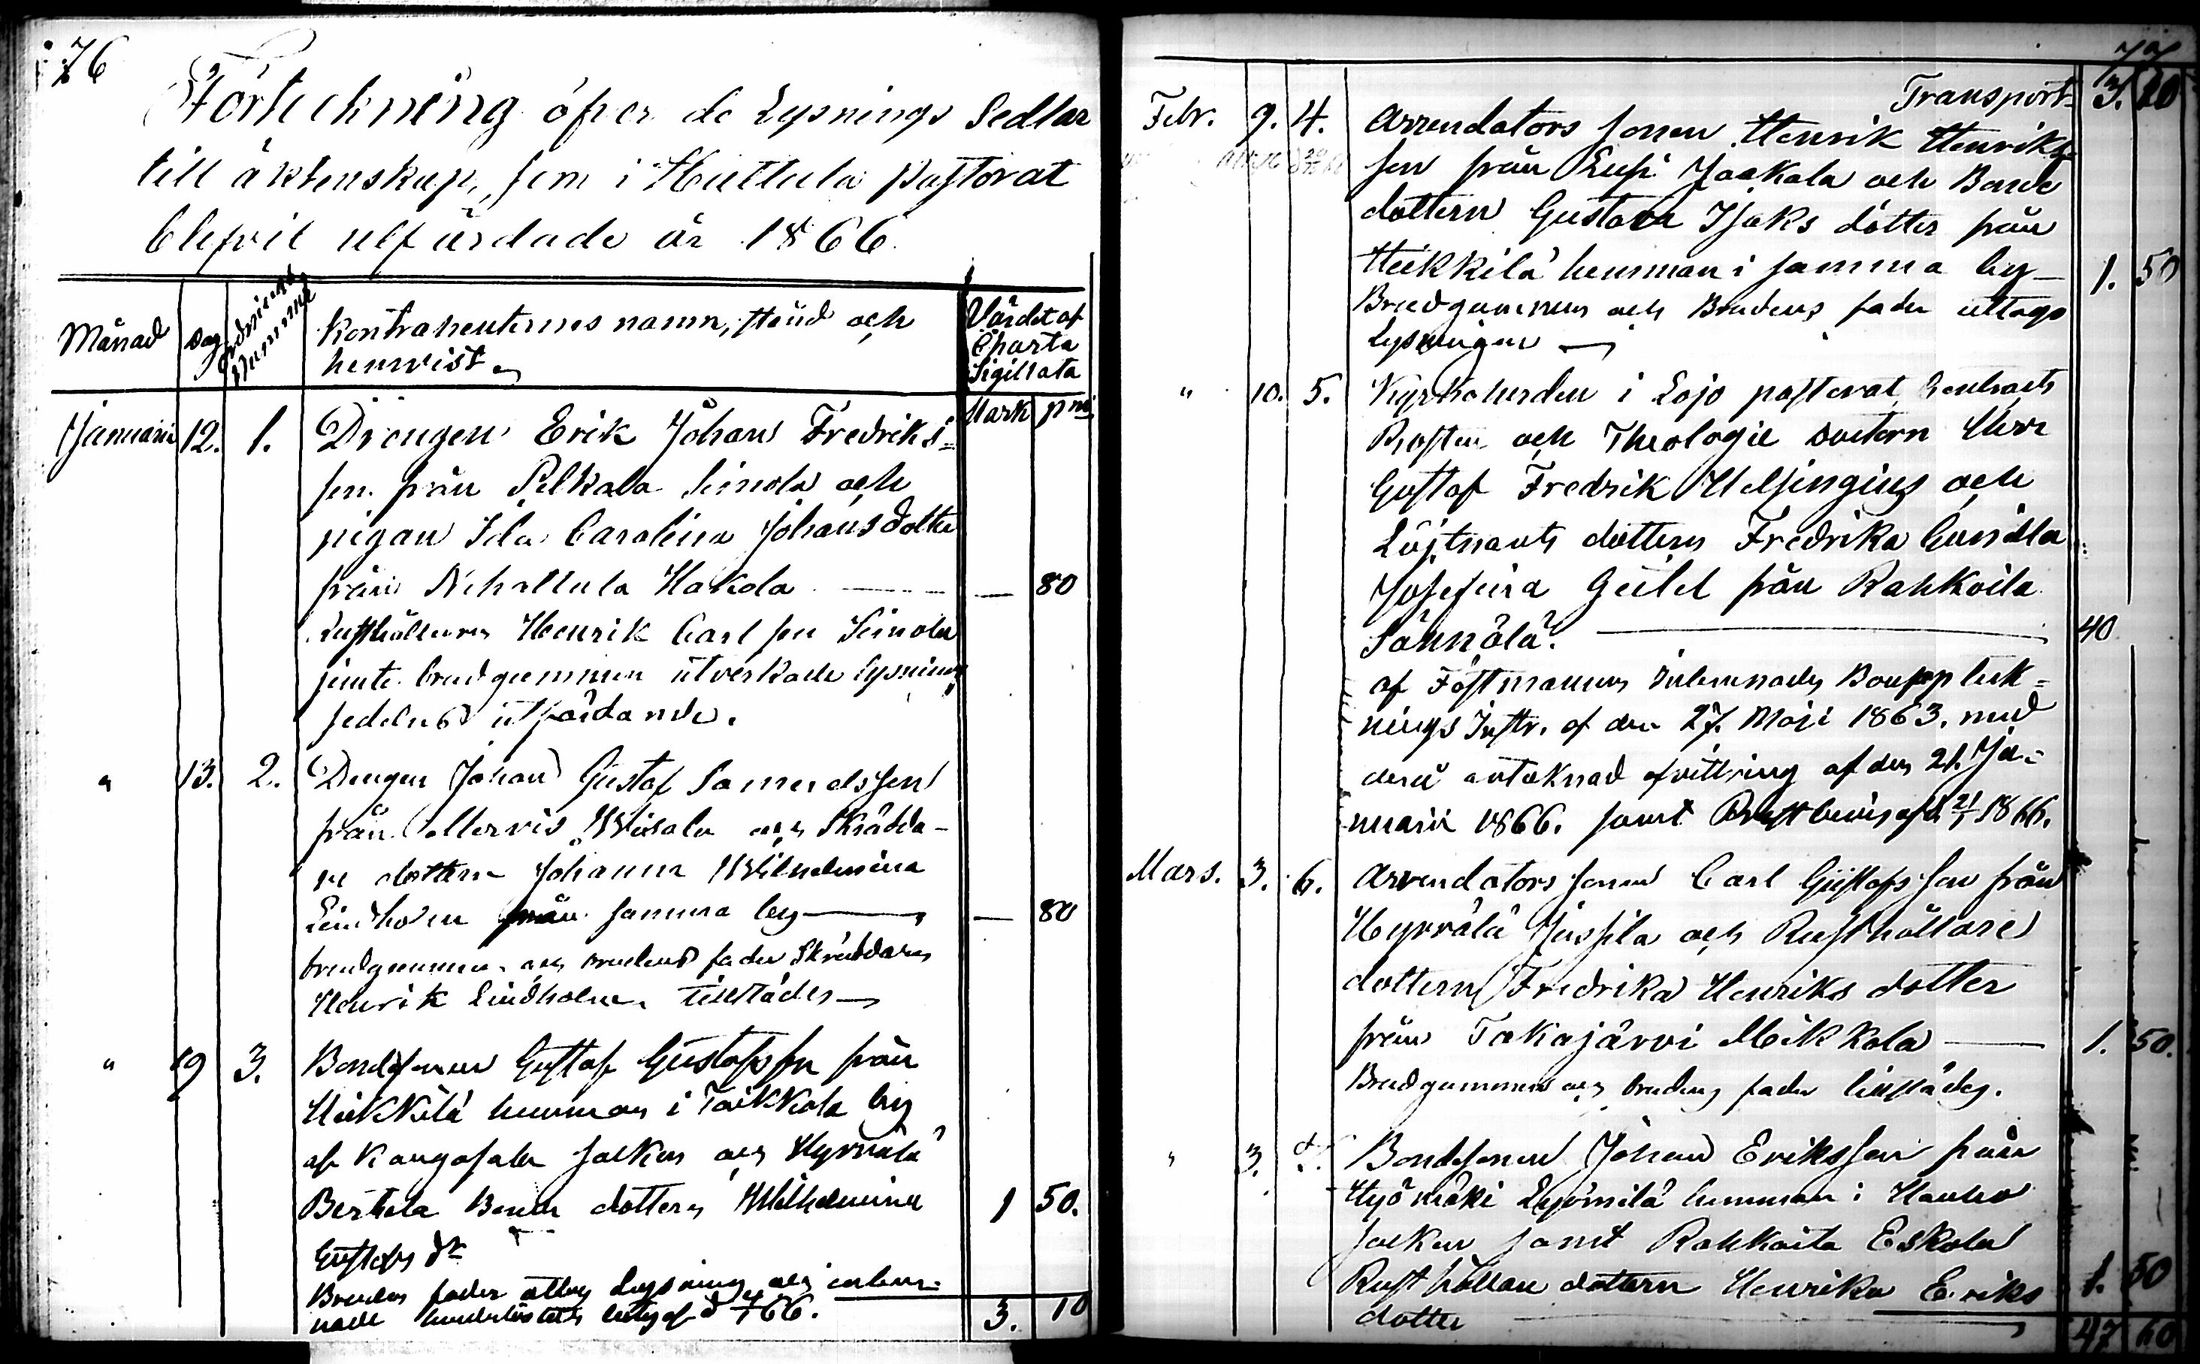 76
Förteckning öfver de Lysnings Sedlar
till äktenskap, som i Hattula pastorat
blefvit utfärdade år 1866.
Månad
Dag
Ordnings Nummer
Kontrahenternes namn, stånd och
hemvist
Värdet af
Charta
Sigillata
Mark pni
Januari 12. 1. Drengen Erik Johan Fredriks=
son från Pelkola Simola och
pigan Ida Carolina Johansdotter
från Nihattula Hakola — 80
Rusthållaren Henrik Carlsson Simola
jemte brudgummen utverkade lysnings
sedelns utfärdande.
" 13. 2. Drengen Johan Gustaf Samuelsson
från Mervis Wisala och Skrädda-
re dottern Johanna Wilhelmina
Lindholm från samma by — 80
brudgummen och brudens fader Skräddaren
Henrik Lindholm tillstädes
" 19 3. Bondesonen Gustaf Gustafsson från
Heikkilä hemman i Toikkola by
af Kangasala socken och Hyrvälä
Bertola Bonde dottern Wilhelmina 1 50.
Gustafs dr
Brudens fader uttog lysning och inlem=
nade hinderlöshets betyg af d 4/1 66.
3. 10
77
Transport 3. 10
Febr. 9. 4. Arrendators sonen Henrik Henriks
son från Jaakola och Bonde
dottern Gustava Isaks dotter från
Heikkilä hemman i samma by — 1. 50
Brudgummen och Brudens fader uttogo
lysningen
" 10. 5. Kyrkoherden i Lojo pastorat, Contracts
Prosten och Theologie doctorn Herr
Gustaf Fredrik Helsingius och
Löjtnants dottern Fredrika Gunilla
Josefina Güldel från Rahkoila
Sannälä. — 40
af Fästmannen inlemnades Boupptek=
nings Instr. af den 27. Maji 1863. med
derå antecknad afvittring af den 21. Ja=
nuari 1866. samt Prestbevis af d. 21/1 1866.
Mars. 3. 6. Arrendators sonen Carl Gustafsson från
Hyrvälä Jussila och Rusthållare
dottern Fredrika Henriks dotter
från Takajärvi Mikkola — 1. 50.
Brudgummen och brudens fader tillstädes.
" 3. 7. Bondesonen Johan Eriksson från
hemman i Hauho
socken samt Rahkoila Eskola
Rusthållare dottern Henrika Eriks 1. 50
dotter
47 60